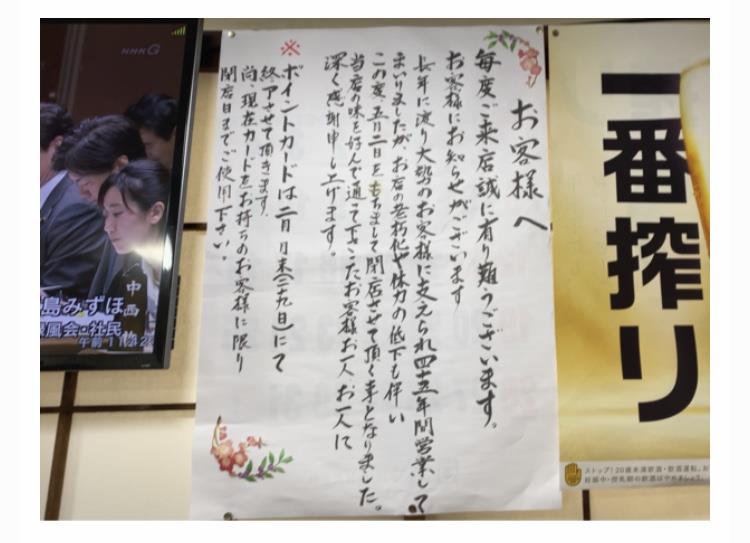 お客様へ
毎度ご来店誠に有り難うございます。
お客様にお知らせがございます
長年に渡り大勢のお客様に支えられ四十五年間営業して
まいりましたが、お店の老朽化や体力の低下も伴い
この度、五月二日をもちまして閉店させて頂く事となりました。
当店の味を好んで通って下さったお客様お一人お一人に
深く感謝申し上げます。
※
ポイントカードは二月末(二十九日)にて
終了させて頂きます。
尚、現在カードをお持ちのお客様に限り
閉店日までご使用下さい。
NHK G
島みずほ
風会・社民
中西
午前11:
一番搾り
ストップ!20歳未満飲酒・飲酒運転。お
妊娠中・授乳期の飲酒はやめましょう。